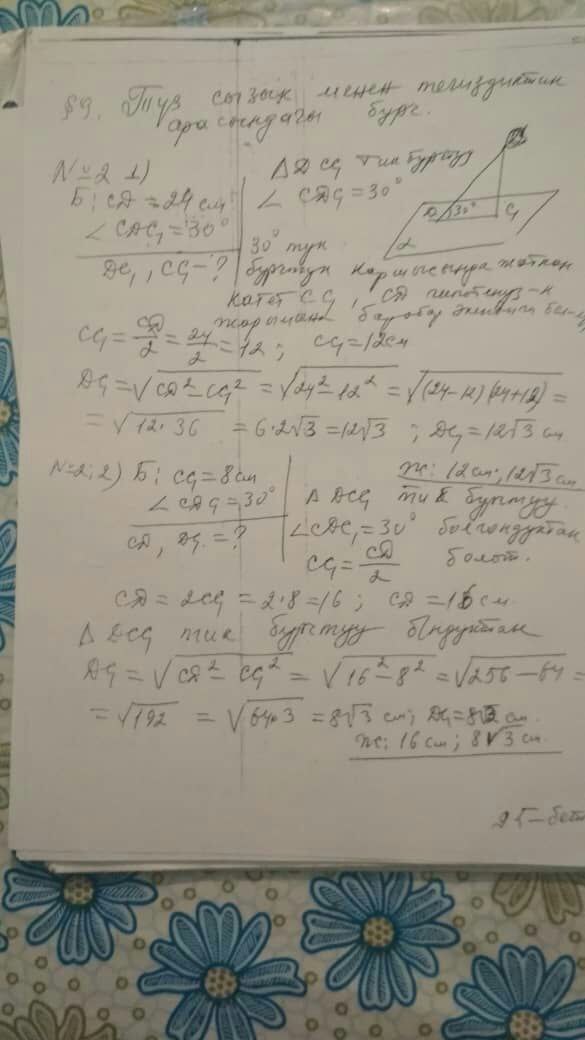 §9. Түз сызык менен тегиздиктин
арасындагы бурч.
№2 1)
Б: CD = 24 см
∠CDC₁ = 30°
DC₁, CC₁ - ?
△DCC₁ тик бурчтуу
∠CDC₁ = 30°
30° тук
бурчтун каршысында жаткан
катет CC₁, CD гипотенуз-н
жарымына барабар
D 30° C₁
α
CC₁ = CD/2 = 24/2 = 12; CC₁ = 12 см
DC₁ = √CD² - CC₁² = √24² - 12² = √(24-12)(24+12) =
= √12·36 = 6·2√3 = 12√3; DC₁ = 12√3 см
Ж: 12 см; 12√3 см
№2; 2) Б: CC₁ = 8 см
∠CDC₁ = 30°
CD, DC₁ = ?
△DCC₁ тик бурчтуу.
∠CDC₁ = 30° болгондуктан
CC₁ = CD/2 болот.
CD = 2CC₁ = 2·8 = 16; CD = 16 см.
△DCC₁ тик бурчтуу
DC₁ = √CD² - CC₁² = √16² - 8² = √256 - 64 =
= √192 = √64·3 = 8√3 см; DC₁ = 8√3 см.
Ж: 16 см; 8√3 см.
25-бет